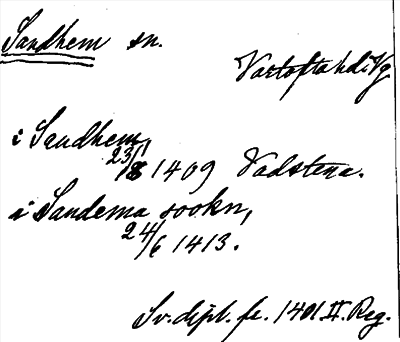 Sandhem sn.
Vartofta hd. Vg
i Sandhem,
23/8 1409 Vadstena.
i Sandema sookn,
24/6 1413.
Sv. dipl. fr. 1401 II. Reg.